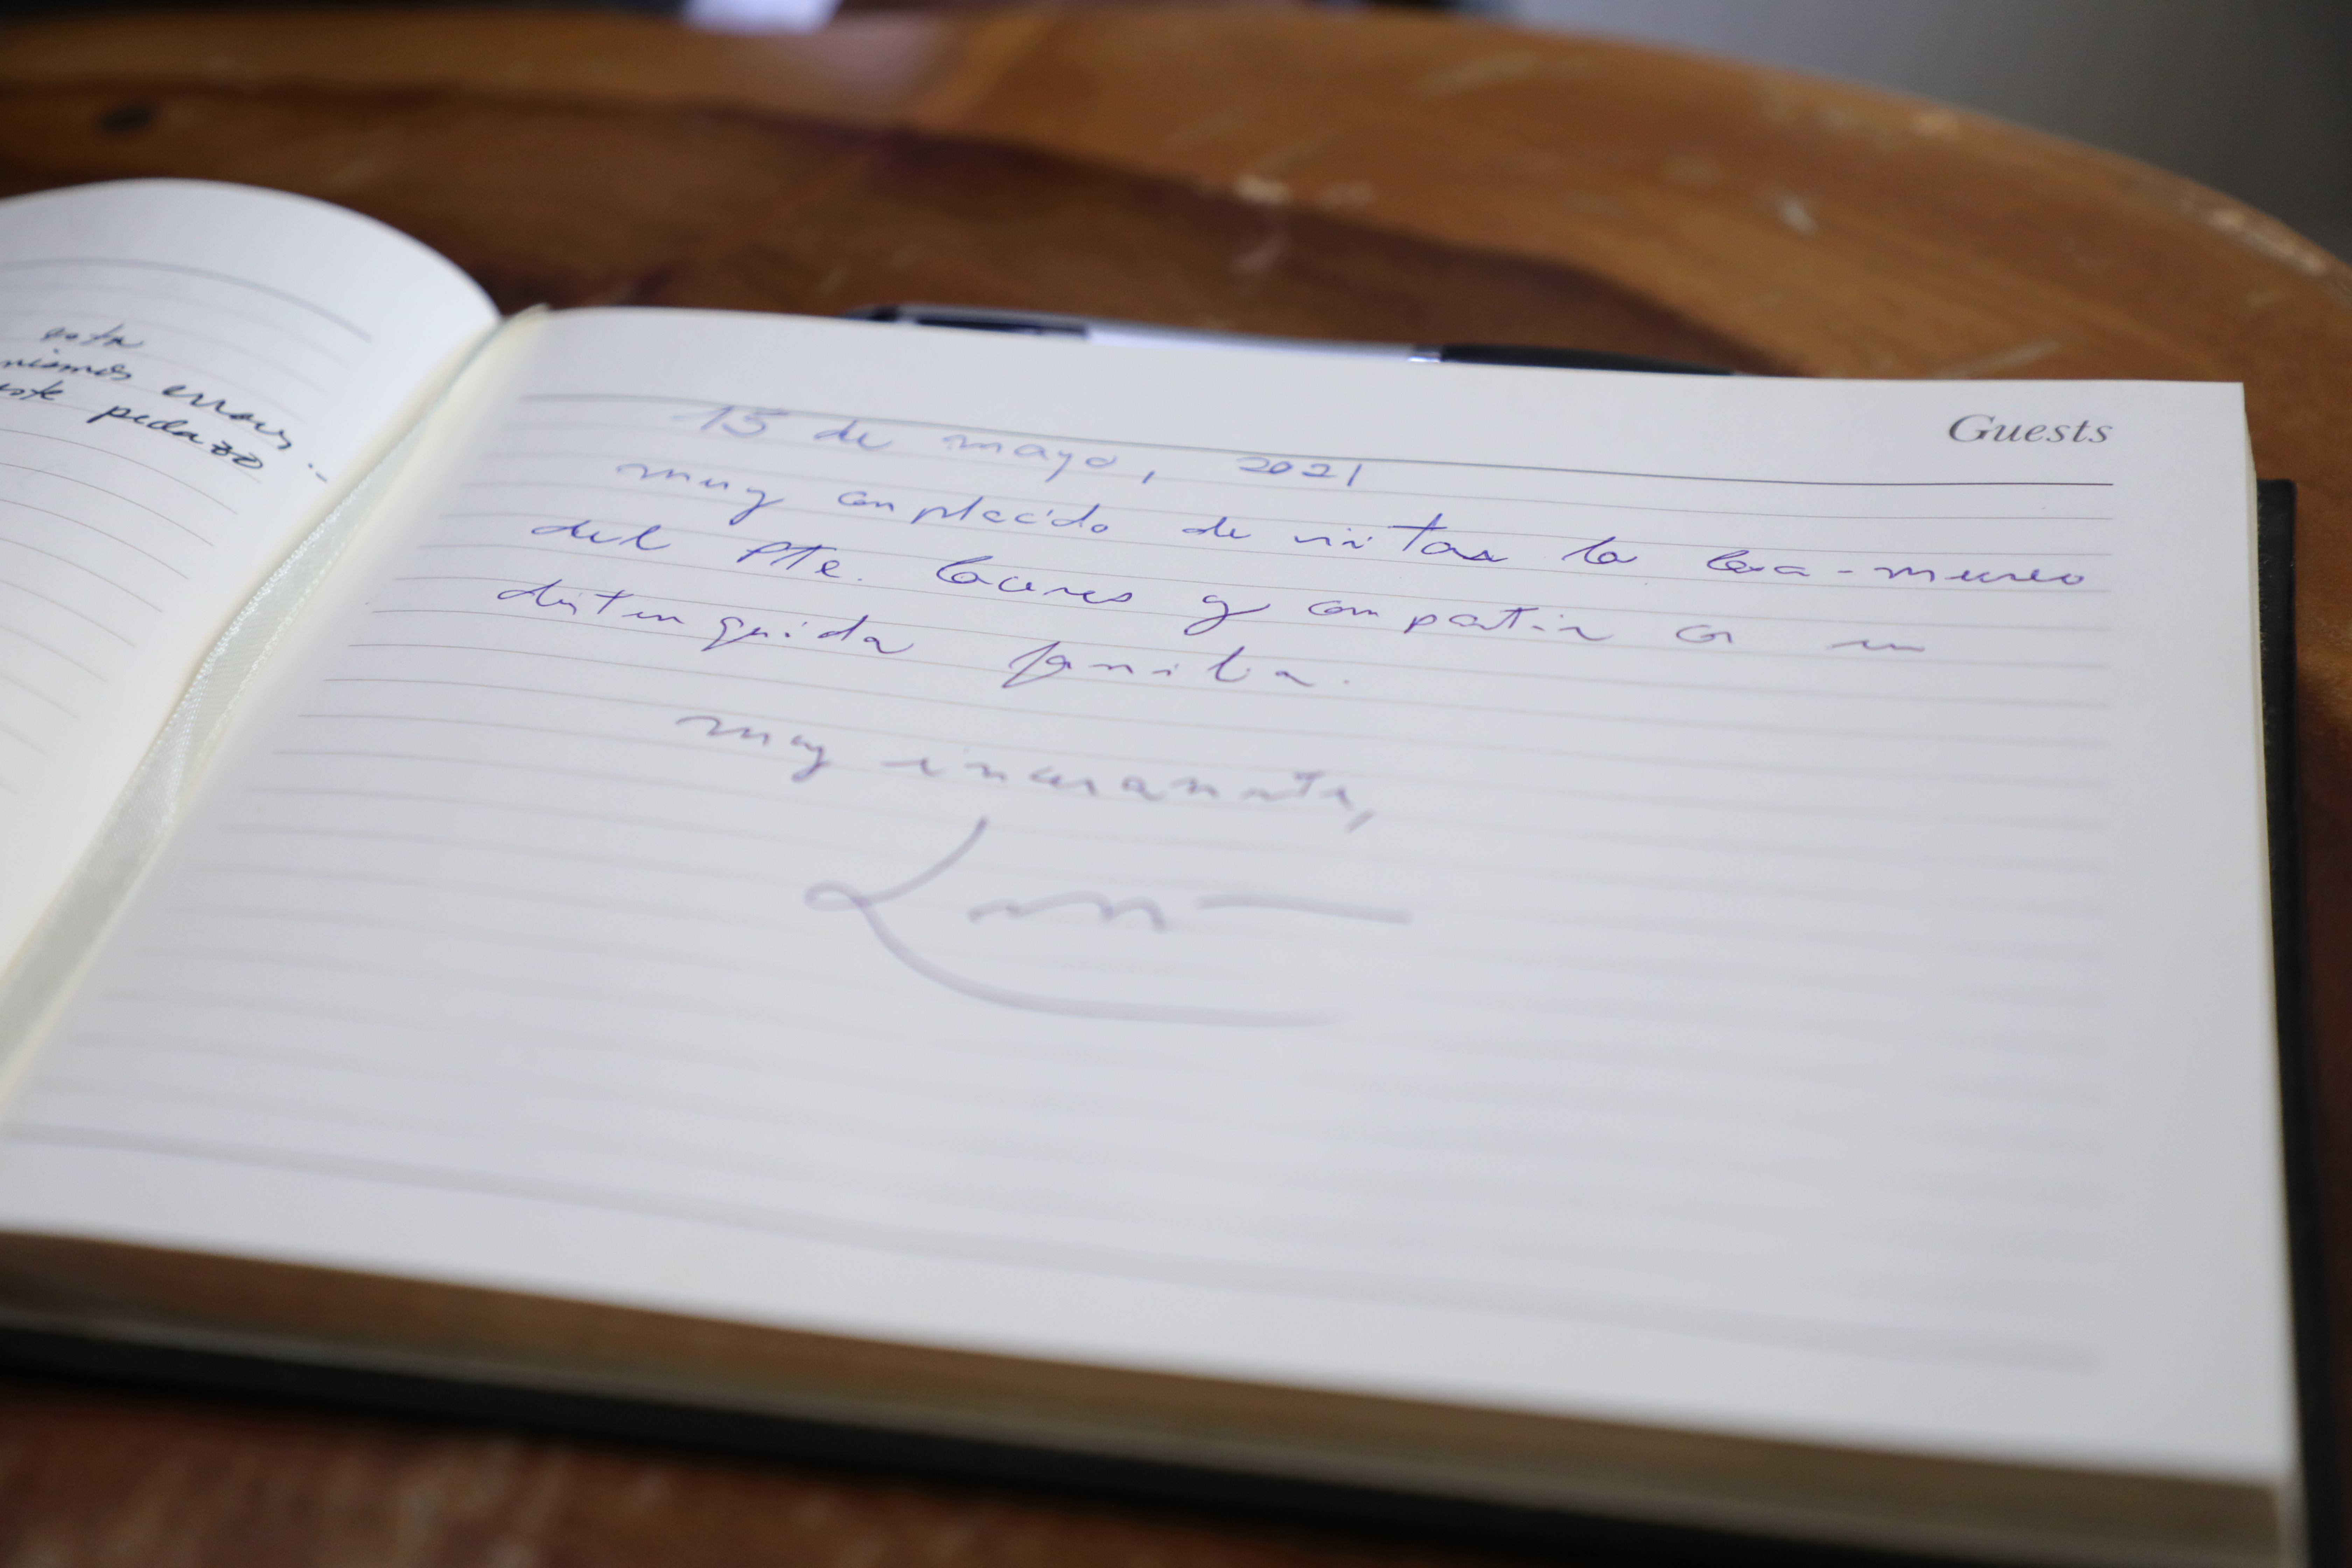 esta
mismos errores..
este pedazo
Guests
15 de mayo, 2021
muy complacido de visitar la Casa-museo
del Pte. Cáceres y compartir con su
distinguida familia.
muy sinceramente,